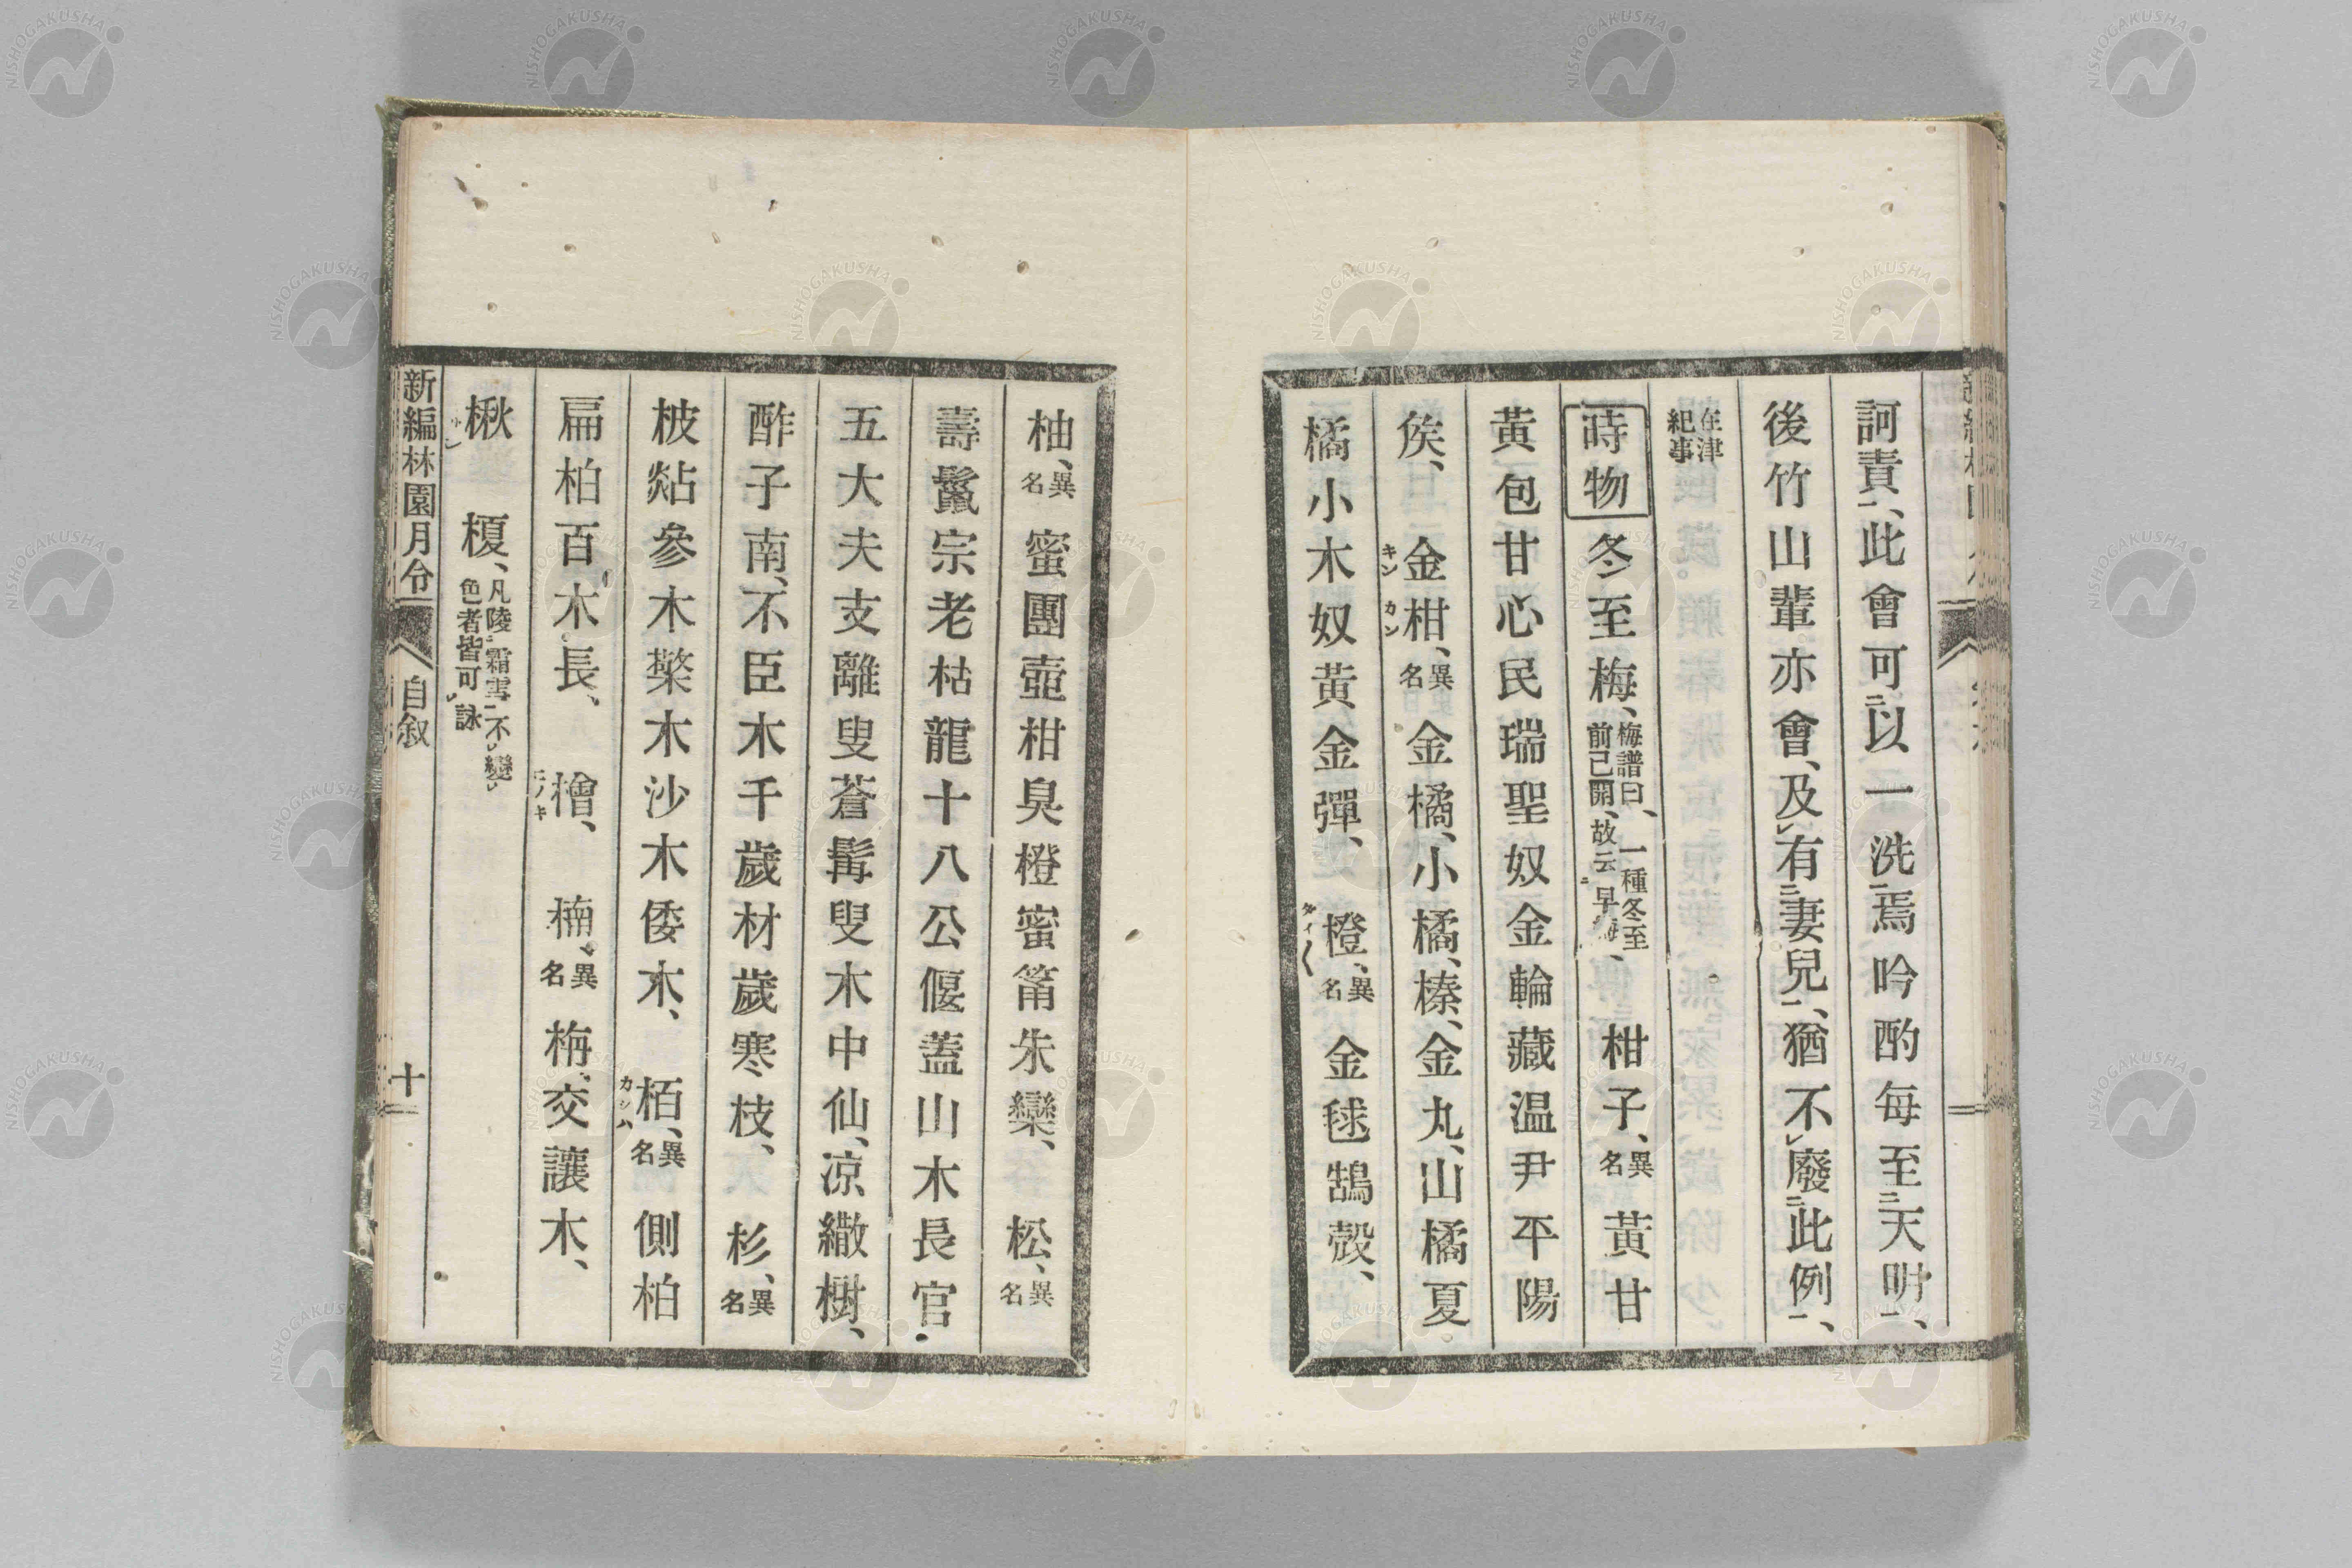 訶責、此會可以一洗焉吟酌每至天明、
後竹山輩亦會、及有妻兒、猶不廢此例、
在津
紀事
時物 冬至梅、梅譜曰、一種冬至前已開、故云早梅、 柑子、異名 黃甘
黃包甘心民瑞聖奴金輪藏温尹平陽
侯、 金柑、異名 金橘、小橘、榛、金丸、山橘夏
キン カン
橘小木奴黃金彈、 橙、異名 金毬鵠殼、
柚、異名 蜜團壺柑臭橙蜜筩朱欒、 松、異名
壽鬣宗老枯龍十八公偃蓋山木長官
五大夫支離叟蒼髯叟木中仙、凉繖樹、
酢子南、不臣木千歲材歲寒枝、 杉、異名
柀煔參木橥木沙木倭木、 栢、異名 側柏
カシハ
扁柏百木長、 檜、 楠、異名 枬交讓木、
ヒノキ
楸 榎、凡陵霜雪不變色者皆可詠
新編林園月令 自叙 十二
NISHOGAKUSHA